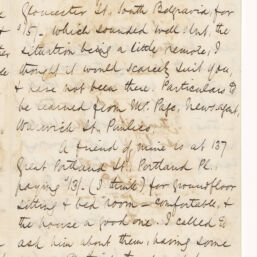 Gloucester St., South Belgravia, for
15/-. Which sounded well: but, the
situation being a little remote, I
thought it would scarcely suit you,
& have not been there. Particulars to
be learned from Mr. Page, News Agent,
Warwick St., Pimlico.
A friend of mine is at 137
Great Portland St., Portland Pl.,
paying 13/- (I think) for ground floor
sitting & bed room — comfortable, &
the house a good one. I called to
ask him about them, having some